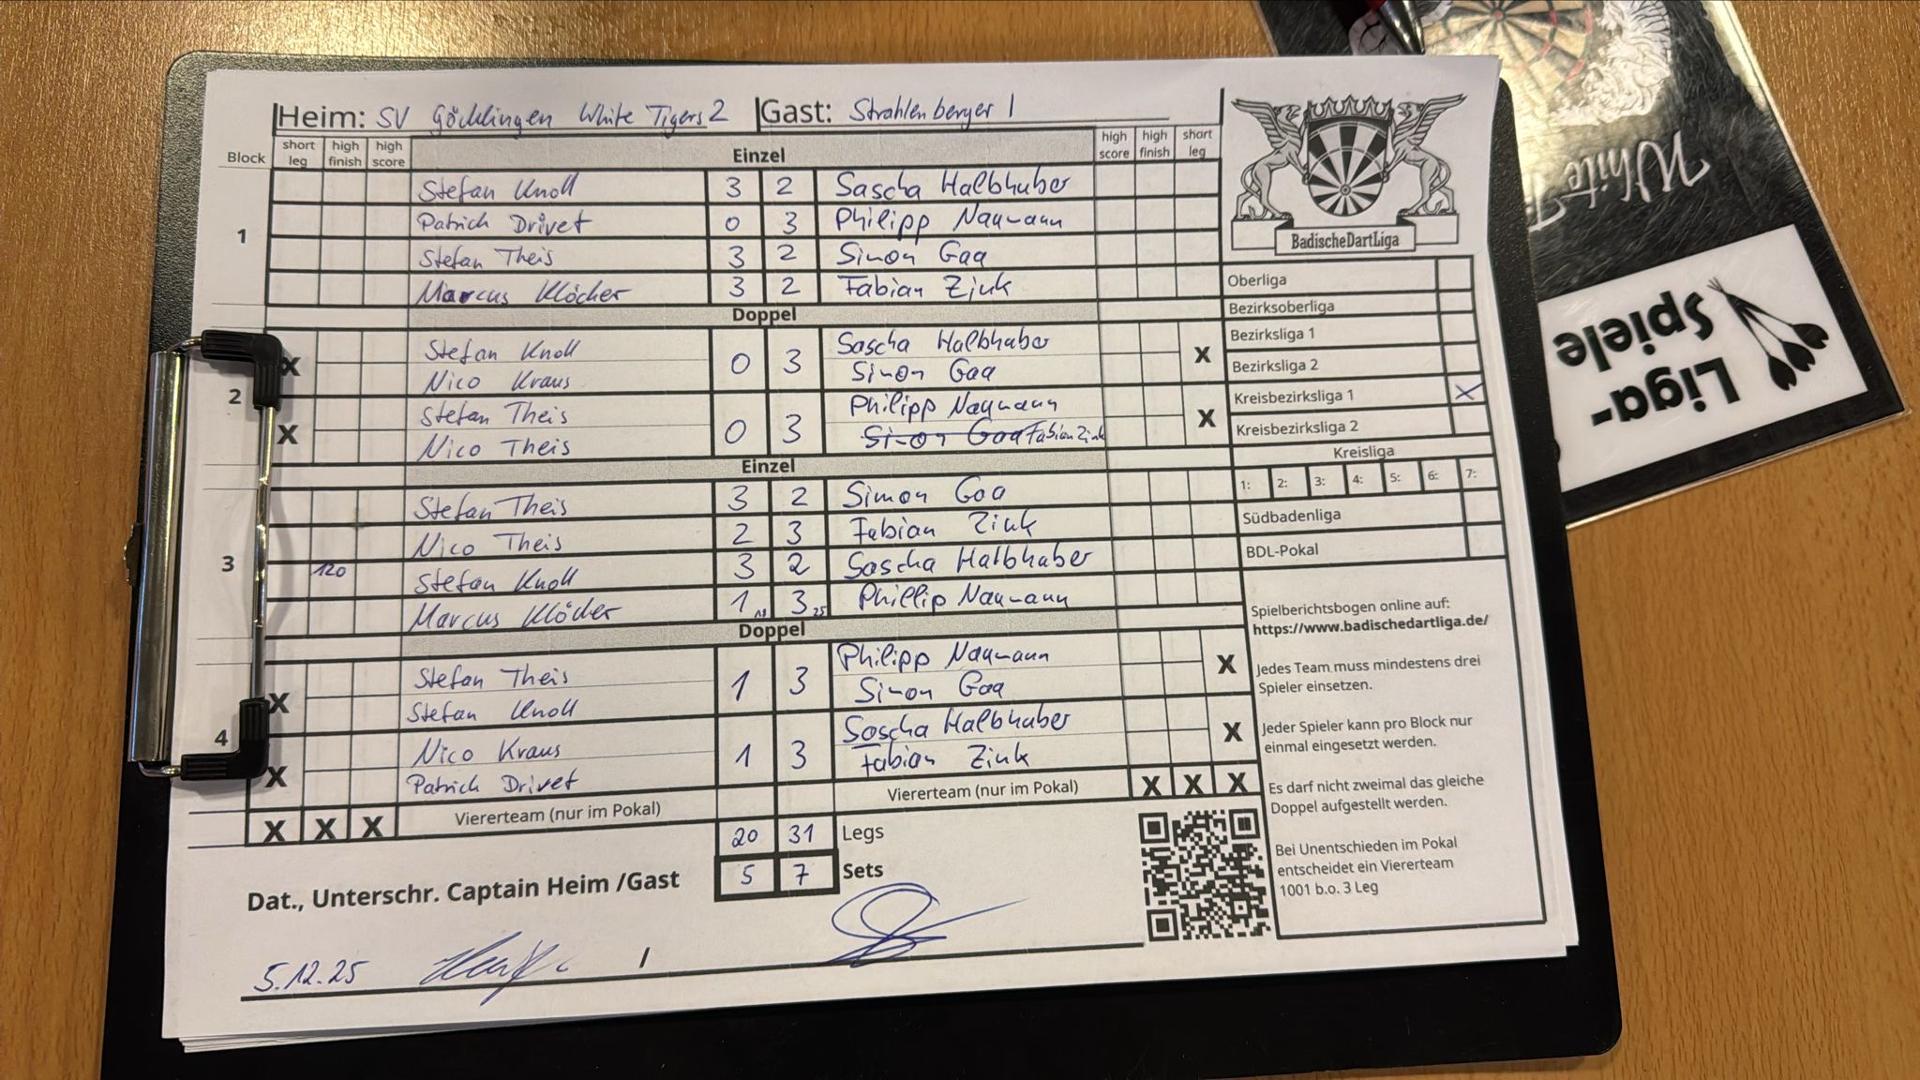 Heim: SV Göcklingen White Tigers 2 Gast: Strahlenberger 1
Block short leg high finish high score Einzel high score high finish short leg
1
Stefan Knoll 3 2 Sascha Halbhuber
Patrick Drivet 0 3 Philipp Naumann
Stefan Theis 3 2 Simon Gaa
Marcus Klöcher 3 2 Fabian Zink
Doppel
2
X Stefan Knoll 0 3 Sascha Halbhuber X
Nico Kraus Simon Gaa
X Stefan Theis 0 3 Philipp Naumann X
Nico Theis Simon Gaa Fabian Zink
Einzel
3
Stefan Theis 3 2 Simon Gaa
Nico Theis 2 3 Fabian Zink
120 Stefan Knoll 3 2 Sascha Halbhuber
Marcus Klöcher 1 18 3 25 Phillip Naumann
Doppel
4
X Stefan Theis 1 3 Philipp Naumann X
Stefan Knoll Simon Gaa
X Nico Kraus 1 3 Sascha Halbhuber X
Patrick Drivet Fabian Zink
X X X Viererteam (nur im Pokal) Viererteam (nur im Pokal) X X X
20 31 Legs
5 7 Sets
Dat., Unterschr. Captain Heim /Gast
5.12.25 /
BadischeDartLiga
Oberliga
Bezirksoberliga
Bezirksliga 1
Bezirksliga 2
Kreisbezirksliga 1 X
Kreisbezirksliga 2
Kreisliga
1: 2: 3: 4: 5: 6: 7:
Südbadenliga
BDL-Pokal
Spielberichtsbogen online auf:
https://www.badischedartliga.de/
Jedes Team muss mindestens drei
Spieler einsetzen.
Jeder Spieler kann pro Block nur
einmal eingesetzt werden.
Es darf nicht zweimal das gleiche
Doppel aufgestellt werden.
Bei Unentschieden im Pokal
entscheidet ein Viererteam
1001 b.o. 3 Leg
White
Liga-
Spiele